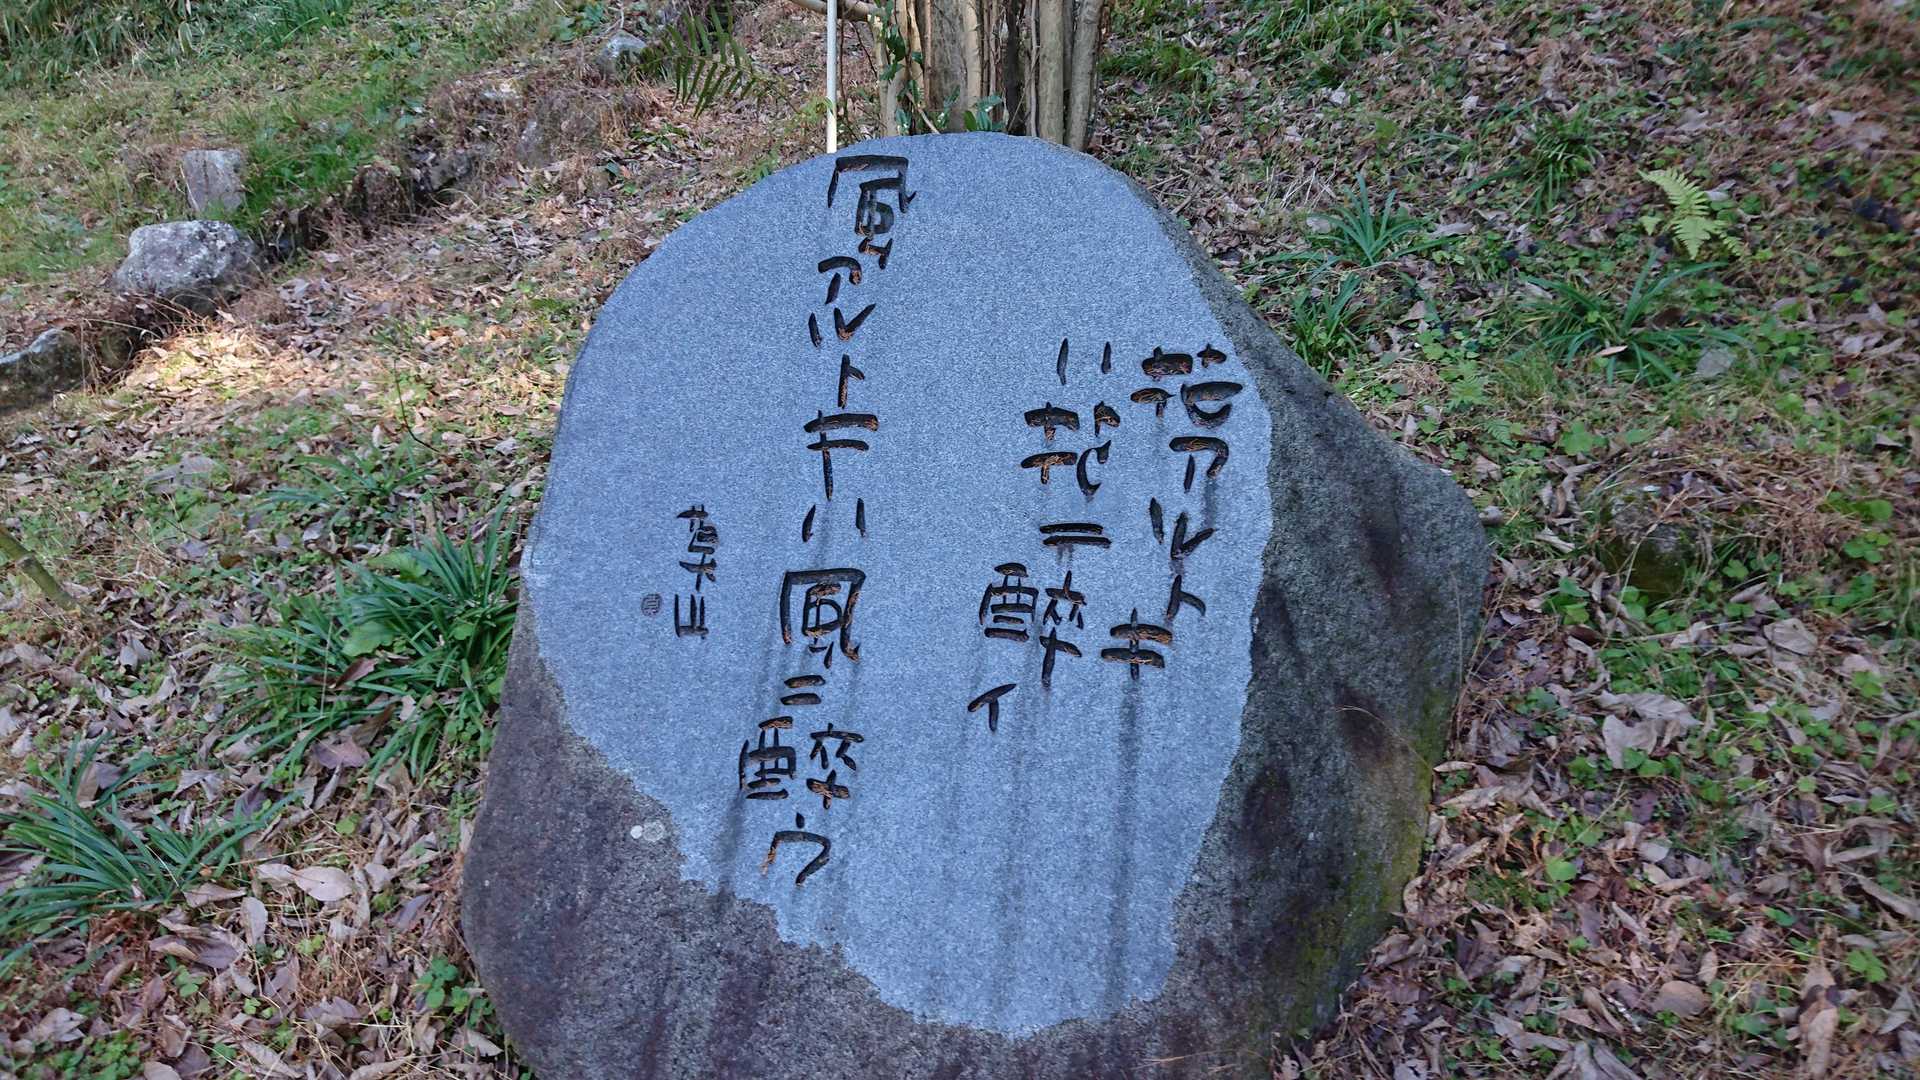 花アルトキ
ハ花ニ酔イ
風アルトキハ風ニ酔ウ